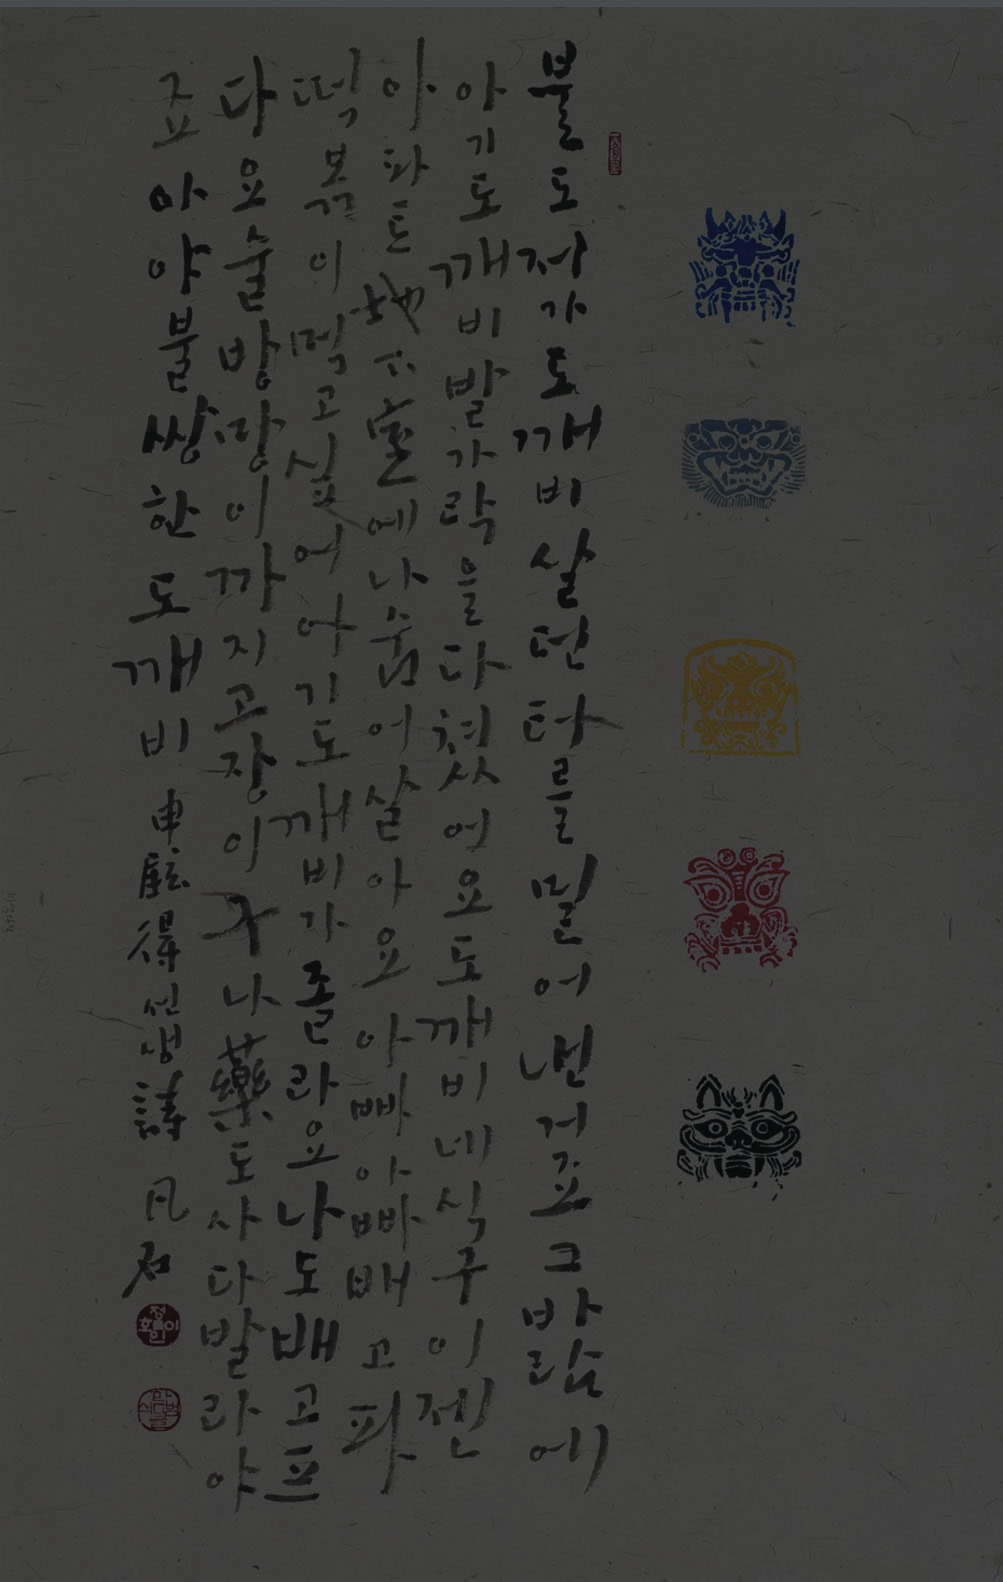 불도저가도깨비살던터를밀어낸거죠그바람에
아기도깨비발가락을다쳤어요도깨비네식구이젠
아파트地下室에나숨어살아요아빠아빠배고파
떡볶이먹고싶어아기도깨비가졸라요나도배고프
다요술방망이까지고장이구나藥도사다발라야
죠아야불쌍한도깨비
申鉉得선생詩 凡石